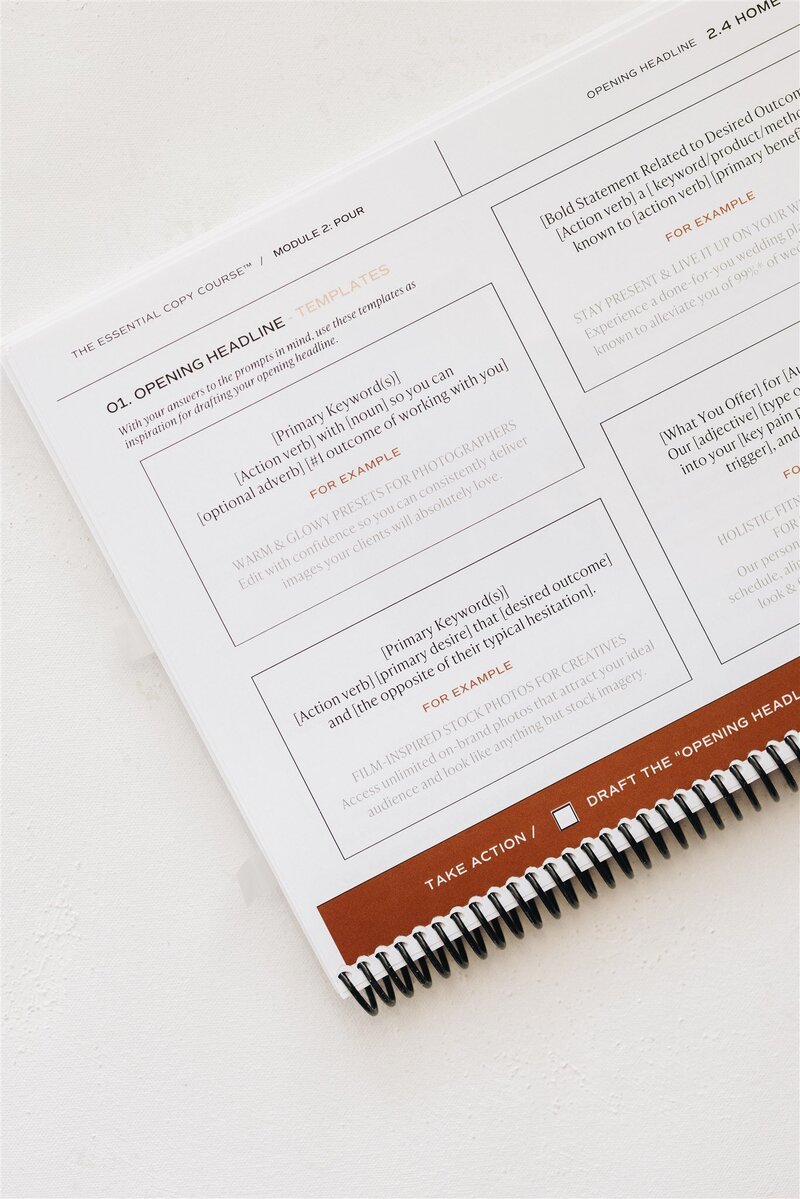 THE ESSENTIAL COPY COURSE™ / MODULE 2: POUR
OPENING HEADLINE 2.4 HOME
01. OPENING HEADLINE - TEMPLATES
With your answers to the prompts in mind, use these templates as
inspiration for drafting your opening headline.
[Primary Keyword(s)]
[Action verb] with [noun] so you can
[optional adverb] [#1 outcome of working with you]
FOR EXAMPLE
WARM & GLOWY PRESETS FOR PHOTOGRAPHERS
Edit with confidence so you can consistently deliver
images your clients will absolutely love.
[Primary Keyword(s)]
[Action verb] [primary desire] that [desired outcome]
and [the opposite of their typical hesitation].
FOR EXAMPLE
FILM-INSPIRED STOCK PHOTOS FOR CREATIVES
Access unlimited on-brand photos that attract your ideal
audience and look like anything but stock imagery.
[Bold Statement Related to Desired
[Action verb] a [keyword/product/
known to [action verb] [primary
FOR EXAMPLE
STAY PRESENT & LIVE IT UP ON YOUR
Experience a done-for-you wedding
known to alleviate you of 99%* of
[What You Offer] for
Our [adjective] [type
into your [key pain
trigger], and
HOLISTIC
FOR
Our
schedule,
look &
TAKE ACTION / DRAFT THE "OPENING